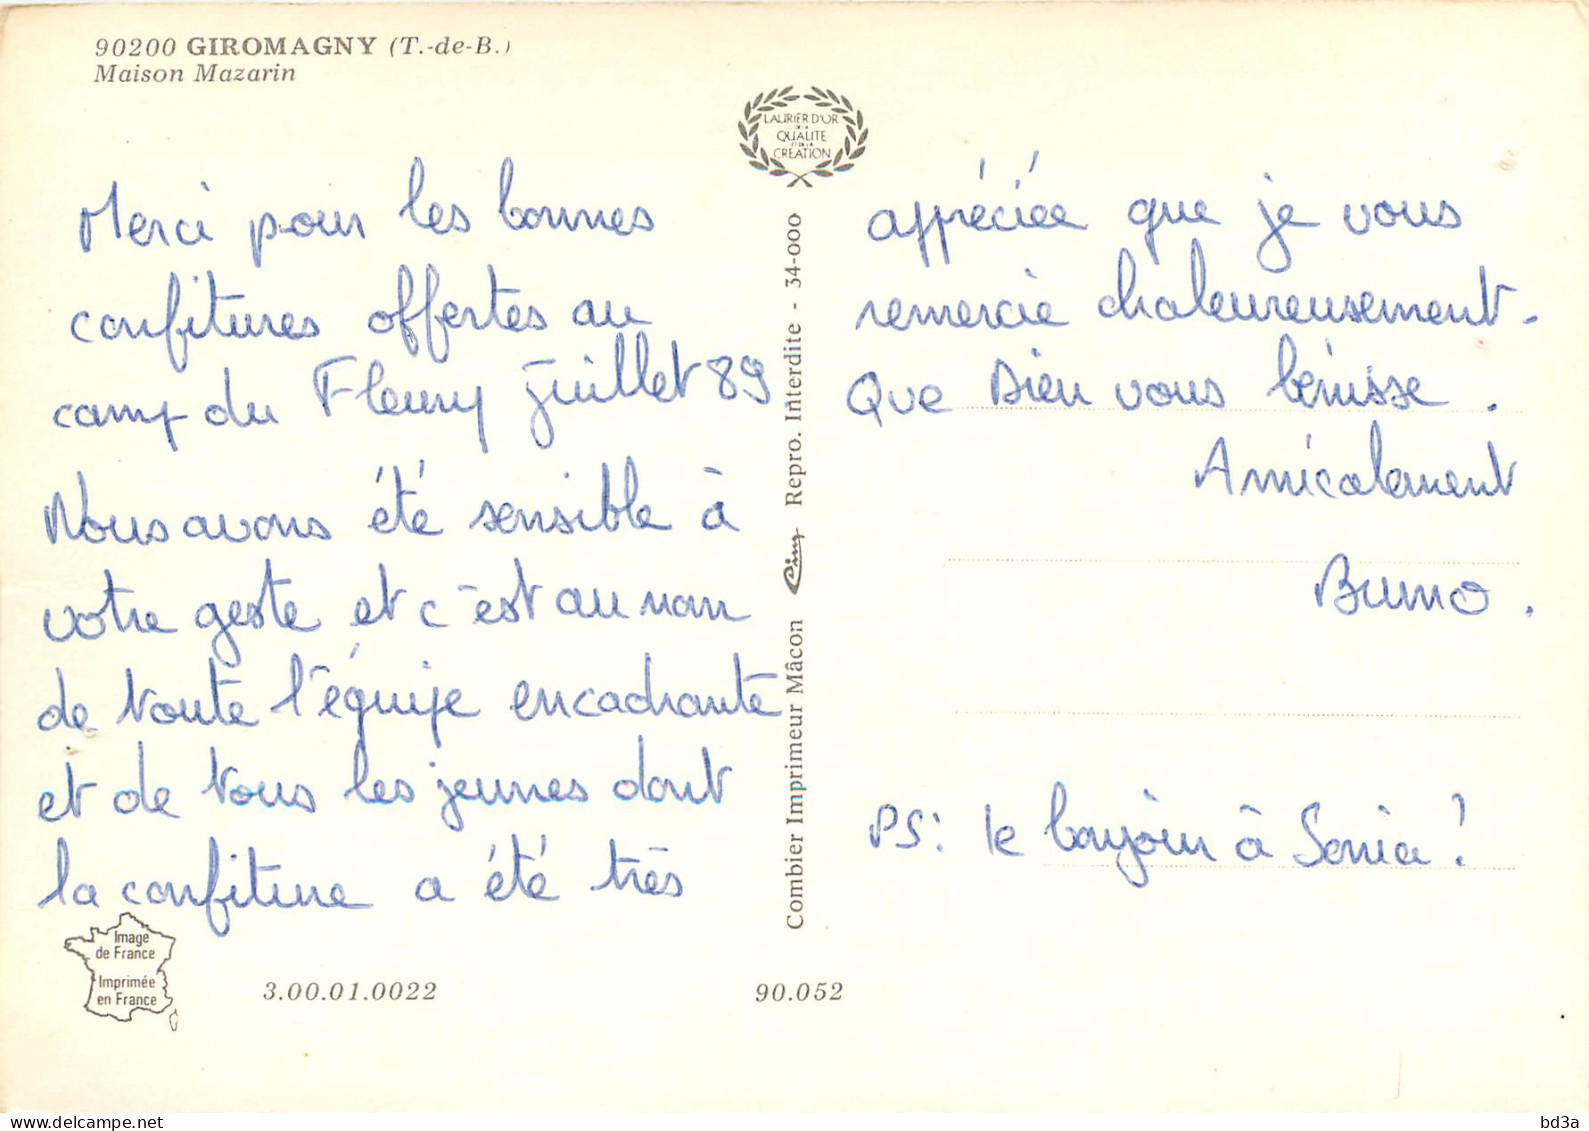 90200 GIROMAGNY (T.-de-B.)
Maison Mazarin
LAURIER D'OR
DE LA
QUALITE
ET DE LA
CREATION
Merci pour les bonnes
confitures offertes au
camp du Fleury Juillet 89
Nous avons été sensible à
votre geste et c'est au nom
de toute l'équipe encadrante
et de tous les jeunes dont
la confiture a été très
appréciée que je vous
remercie chaleureusement.
Que Dieu vous bénisse.
Amicalement
Bruno.
PS: le bonjour à Sonia!
Combier Imprimeur Mâcon Cim Repro. Interdite - 34-000
Image
de France
Imprimée
en France
3.00.01.0022
90.052
delcampe.net
bd3a